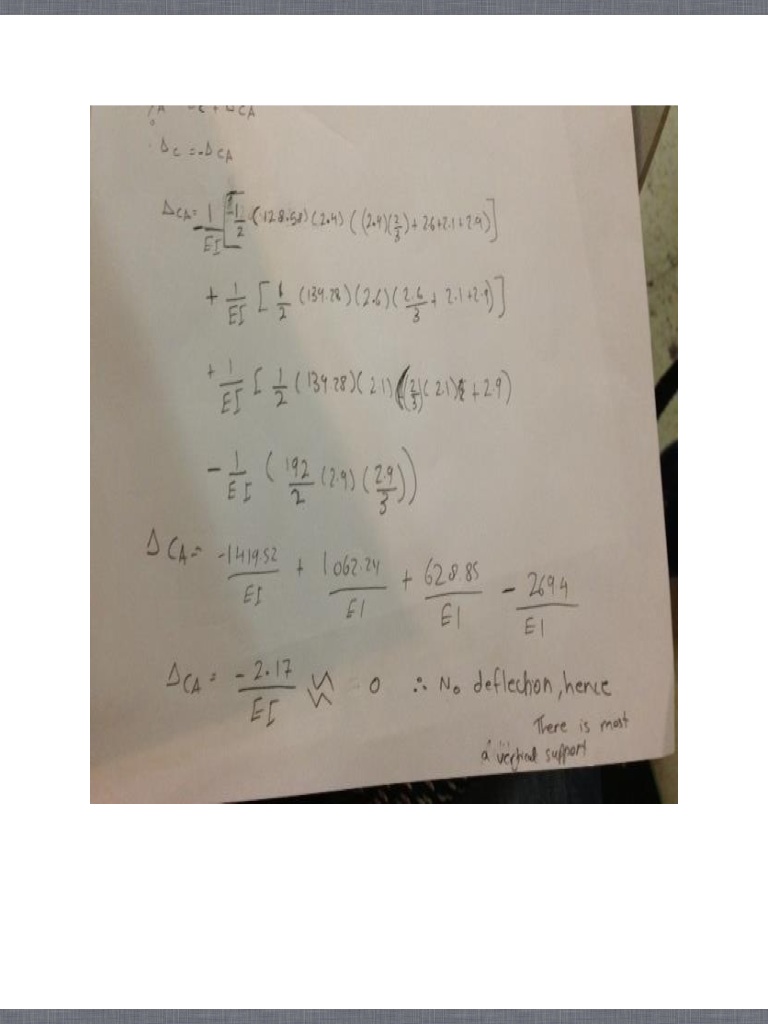 Δc = -ΔCA
ΔCA = -1/EI [1/2 (128.58)(2.4)((2.4)(2/3) + 2.6+2.1+2.9)]
+ 1/EI [1/2 (139.28)(2.6)(2.6/3 + 2.1+2.9)]
+ 1/EI [1/2 (139.28)(2.1)((2/3)(2.1) + 2.9)
- 1/EI (192/2 (2.9)(2.9/3))
ΔCA = -1419.52/EI + 1062.24/EI + 628.85/EI - 269.4/EI
ΔCA = -2.17/EI ≈ 0 ∴ No deflection, hence
There is most
a vertical support